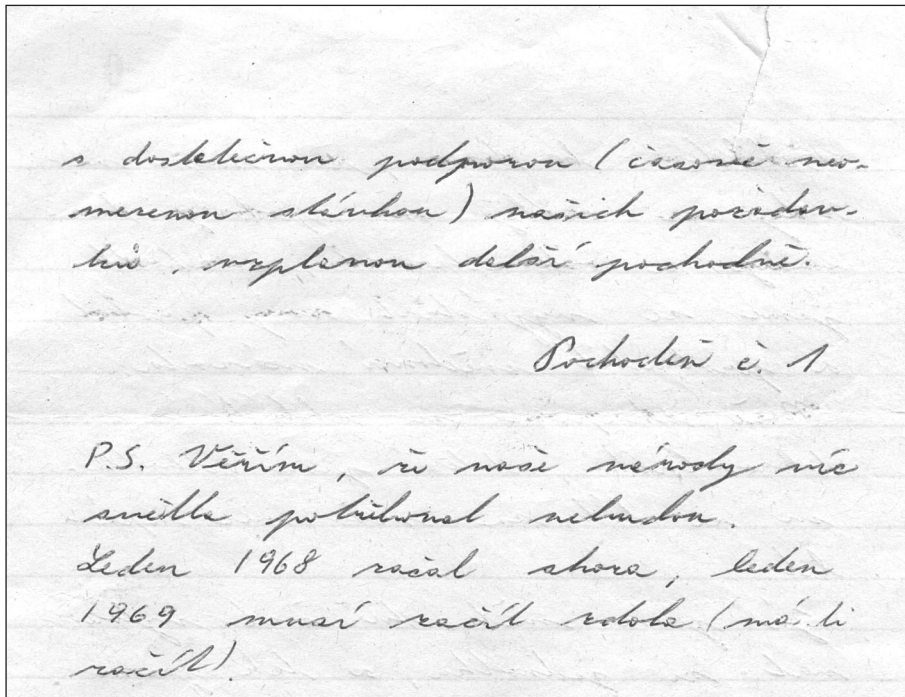 s dostatečnou podporou (časově neo-
mezenou stávkou) našich požadav-
ků, vzplanou další pochodně.
Pochodeň č. 1
P.S. Věřím, že naše národy víc
světla potřebovat nebudou.
Leden 1968 začal shora, leden
1969 musí začít zdola (má li
začít).